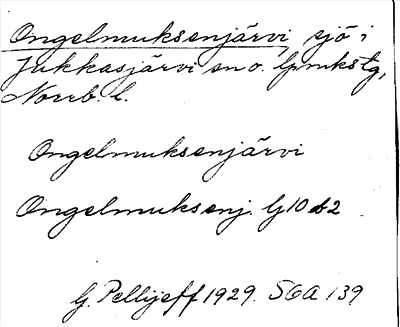 Ongelmuksenjärvi, sjö i
Jukkasjärvi sn o. lpmkstg,
Norrb. l.
Ongelmuksenjärvi
Ongelmuksenj. G10 d2
G. Pellijeff 1929. SOA 139